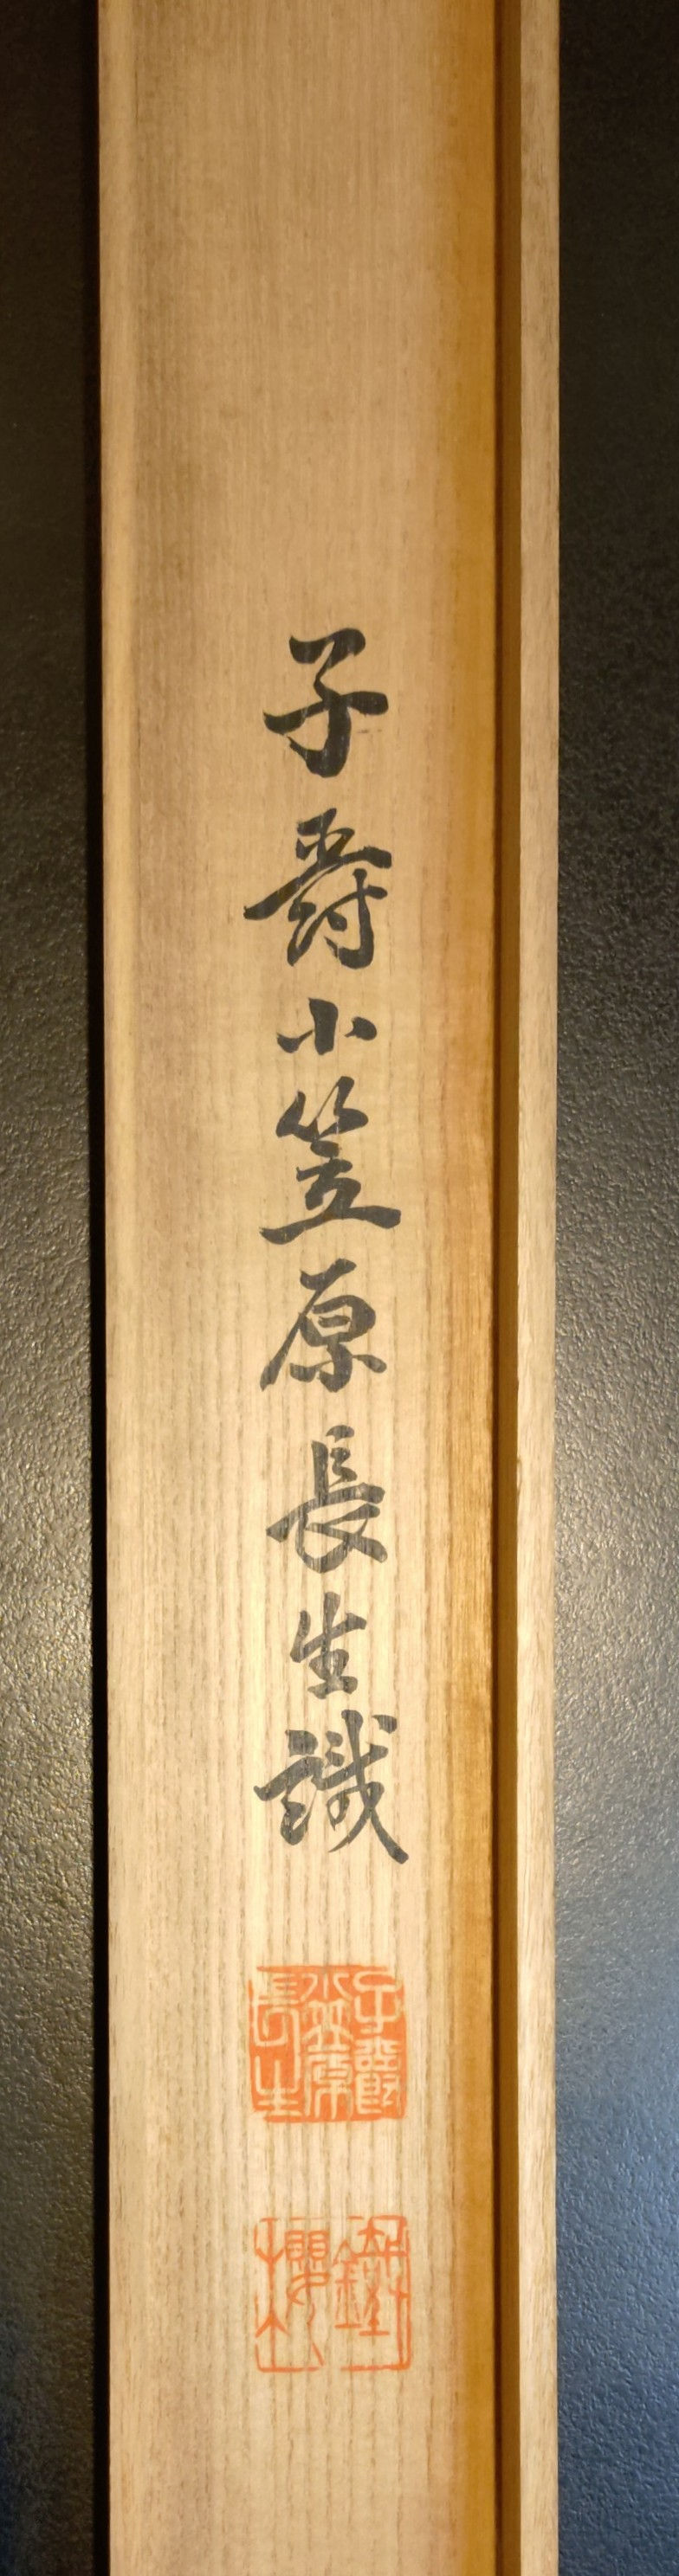 子爵小笠原長生識
子爵小笠原長生
鐵櫻